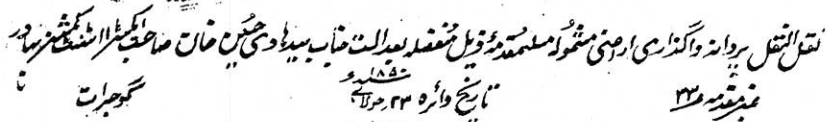 نقل النقل پروانہ واگذاری اراضی مشمولہ مسلمقدمۂ ذیل منفصلہ بعدالت جناب سید ہادی حسین خان صاحب اکسٹرا اسسٹنٹ کمشنر بہادر
نمبر مقدمہ ۳۳ تاریخ دائرہ ۲۳ جولائی ۱۸۵۰ گوجرات